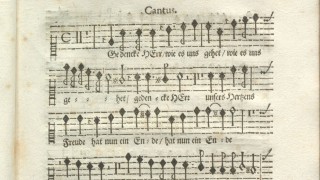 Cantus.
Gedencke HErr/wie es uns gehet/wie es uns
ge- - - het/geden- cke HErr unsers Hertzens
Freude hat nun ein En- de/hat nun ein En- de